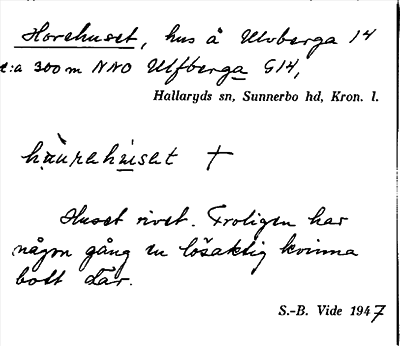 Horehuset, hus å Ulvberga 14
c:a 300 m NNO Ulfberga G14,
Hallaryds sn, Sunnerbo hd, Kron. l.
hàurehuset †
Huset rivet. Troligen har
någon gång en lösaktig kvinna
bott där.
S.-B. Vide 1947